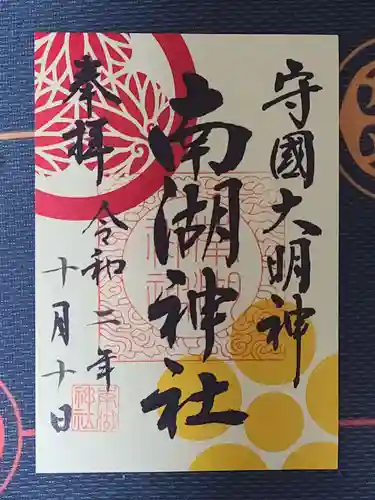 守國大明神
南湖神社
奉拝
令和二年
十月十日
南湖
神社